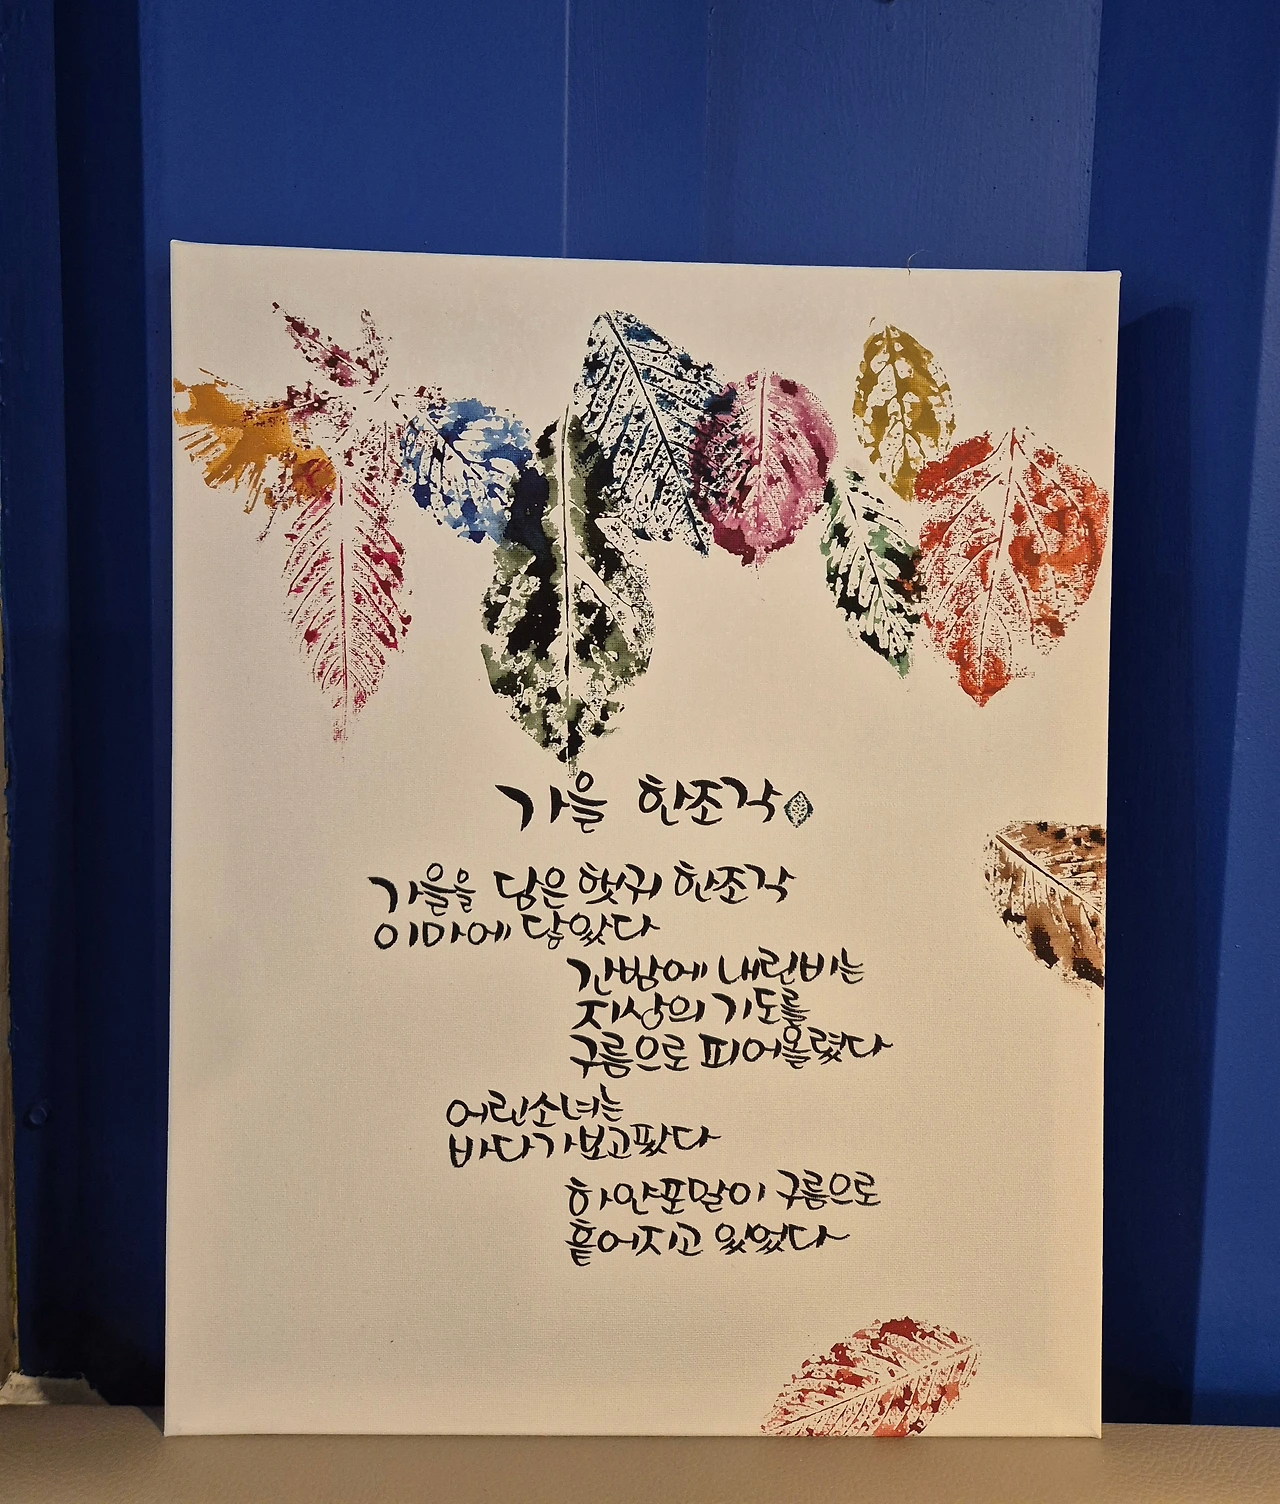 가을 한조각
가을을 담은 햇귀 한조각
이마에 닿았다
간밤에 내린비는
지상의 기도를
구름으로 피어올렸다
어린소녀는
바다가보고팠다
하얀포말이 구름으로
흩어지고 있었다